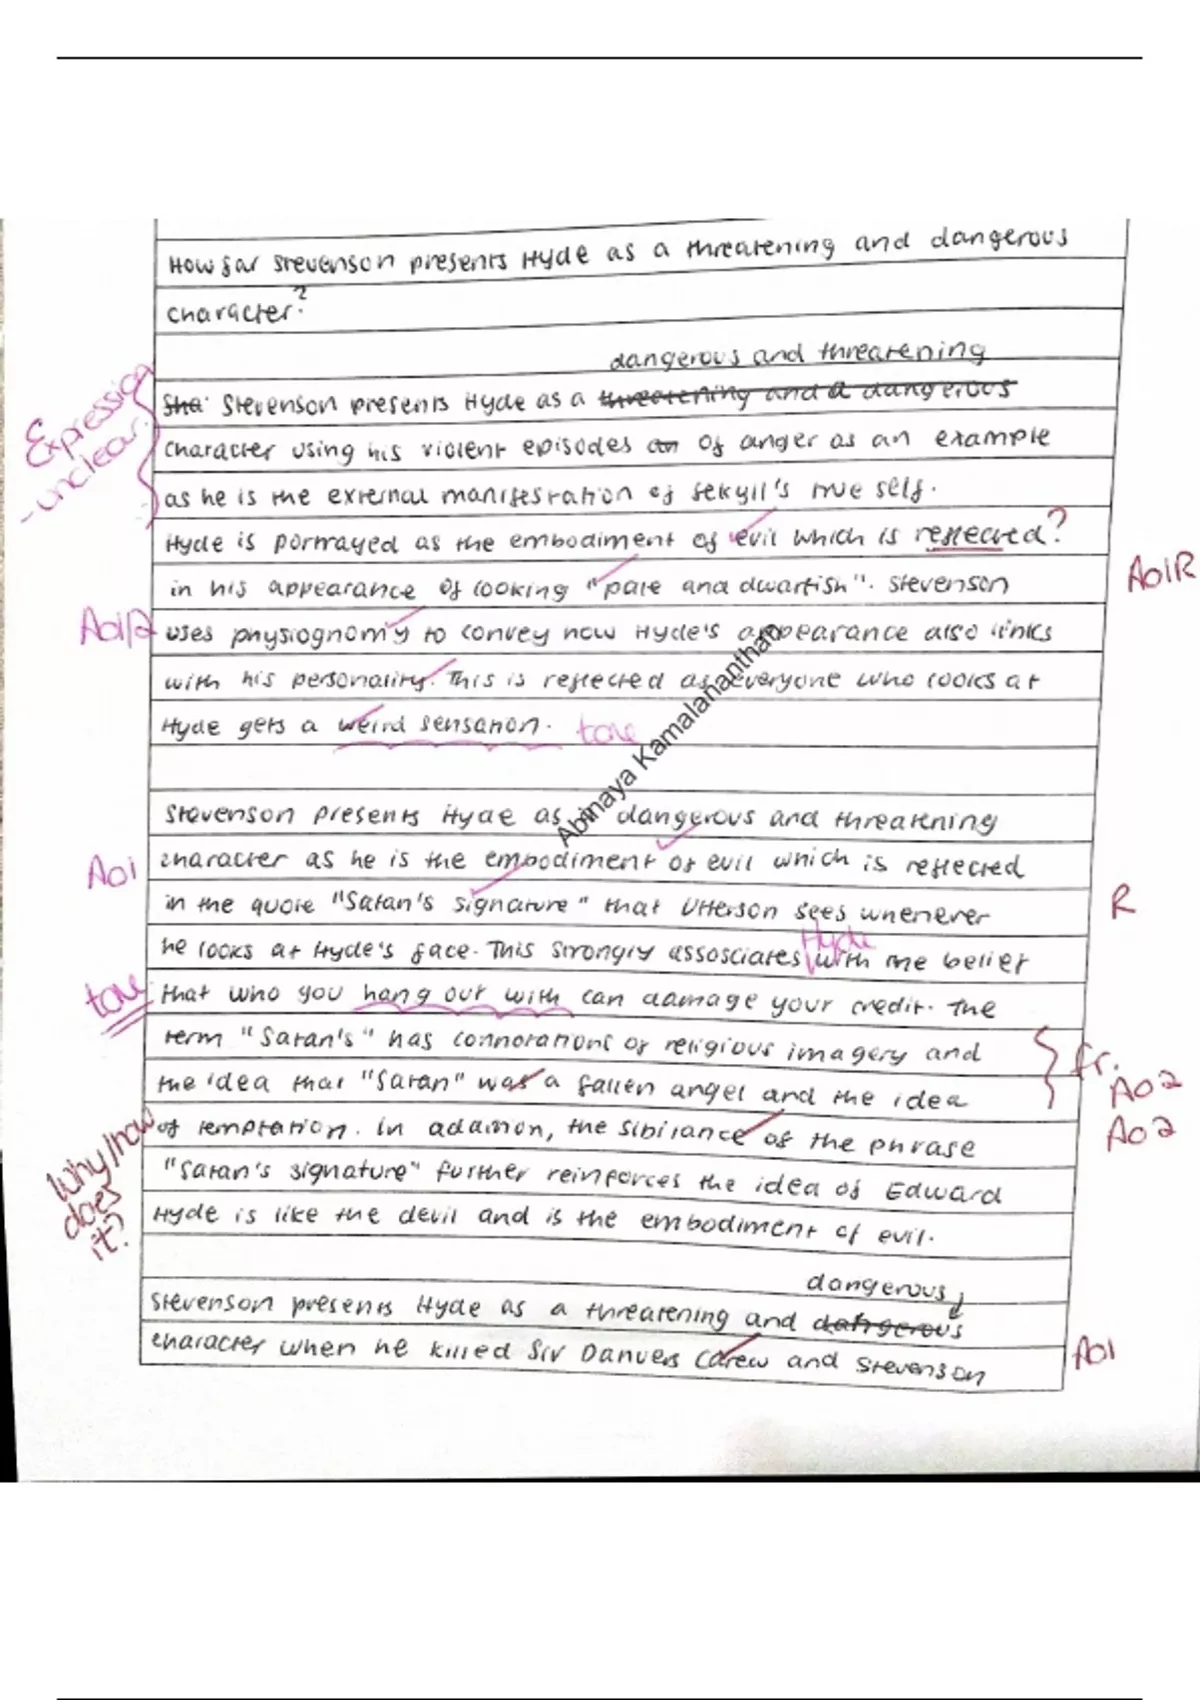 How far Stevenson presents Hyde as a threatening and dangerous
character?
dangerous and threatening
Expression
- unclear.
Sha. Stevenson presents Hyde as a threatening and a dangerous
character using his violent episodes an of anger as an example
as he is the external manifestation of Jekyll's true self.
Hyde is portrayed as the embodiment of evil which is reflected?
in his appearance of looking "pale and dwarfish". Stevenson
AO1R
AO1R uses physiognomy to convey how Hyde's appearance also links
with his personality. This is reflected as everyone who looks at
Hyde gets a weird sensation. tone
Abinaya Kamalananthan
Stevenson presents Hyde as a dangerous and threatening
AO1 character as he is the embodiment of evil which is reflected
in the quote "Satan's signature" that Utterson sees whenever R
Hyde
he looks at Hyde's face. This strongly assosciates with the belief
tone that who you hang out with can damage your credit. The
term "Satan's" has connorations of religious imagery and fr.
the idea that "Satan" was a fallen angel and the idea AO2
of temptation. In addition, the sibilance of the phrase AO2
Why/how
does
it?
"Satan's signature" further reinforces the idea of Edward
Hyde is like the devil and is the embodiment of evil.
dangerous
Stevenson presents Hyde as a threatening and dahgerous
character when he killed Sir Danvers Carew and Stevenson AO1